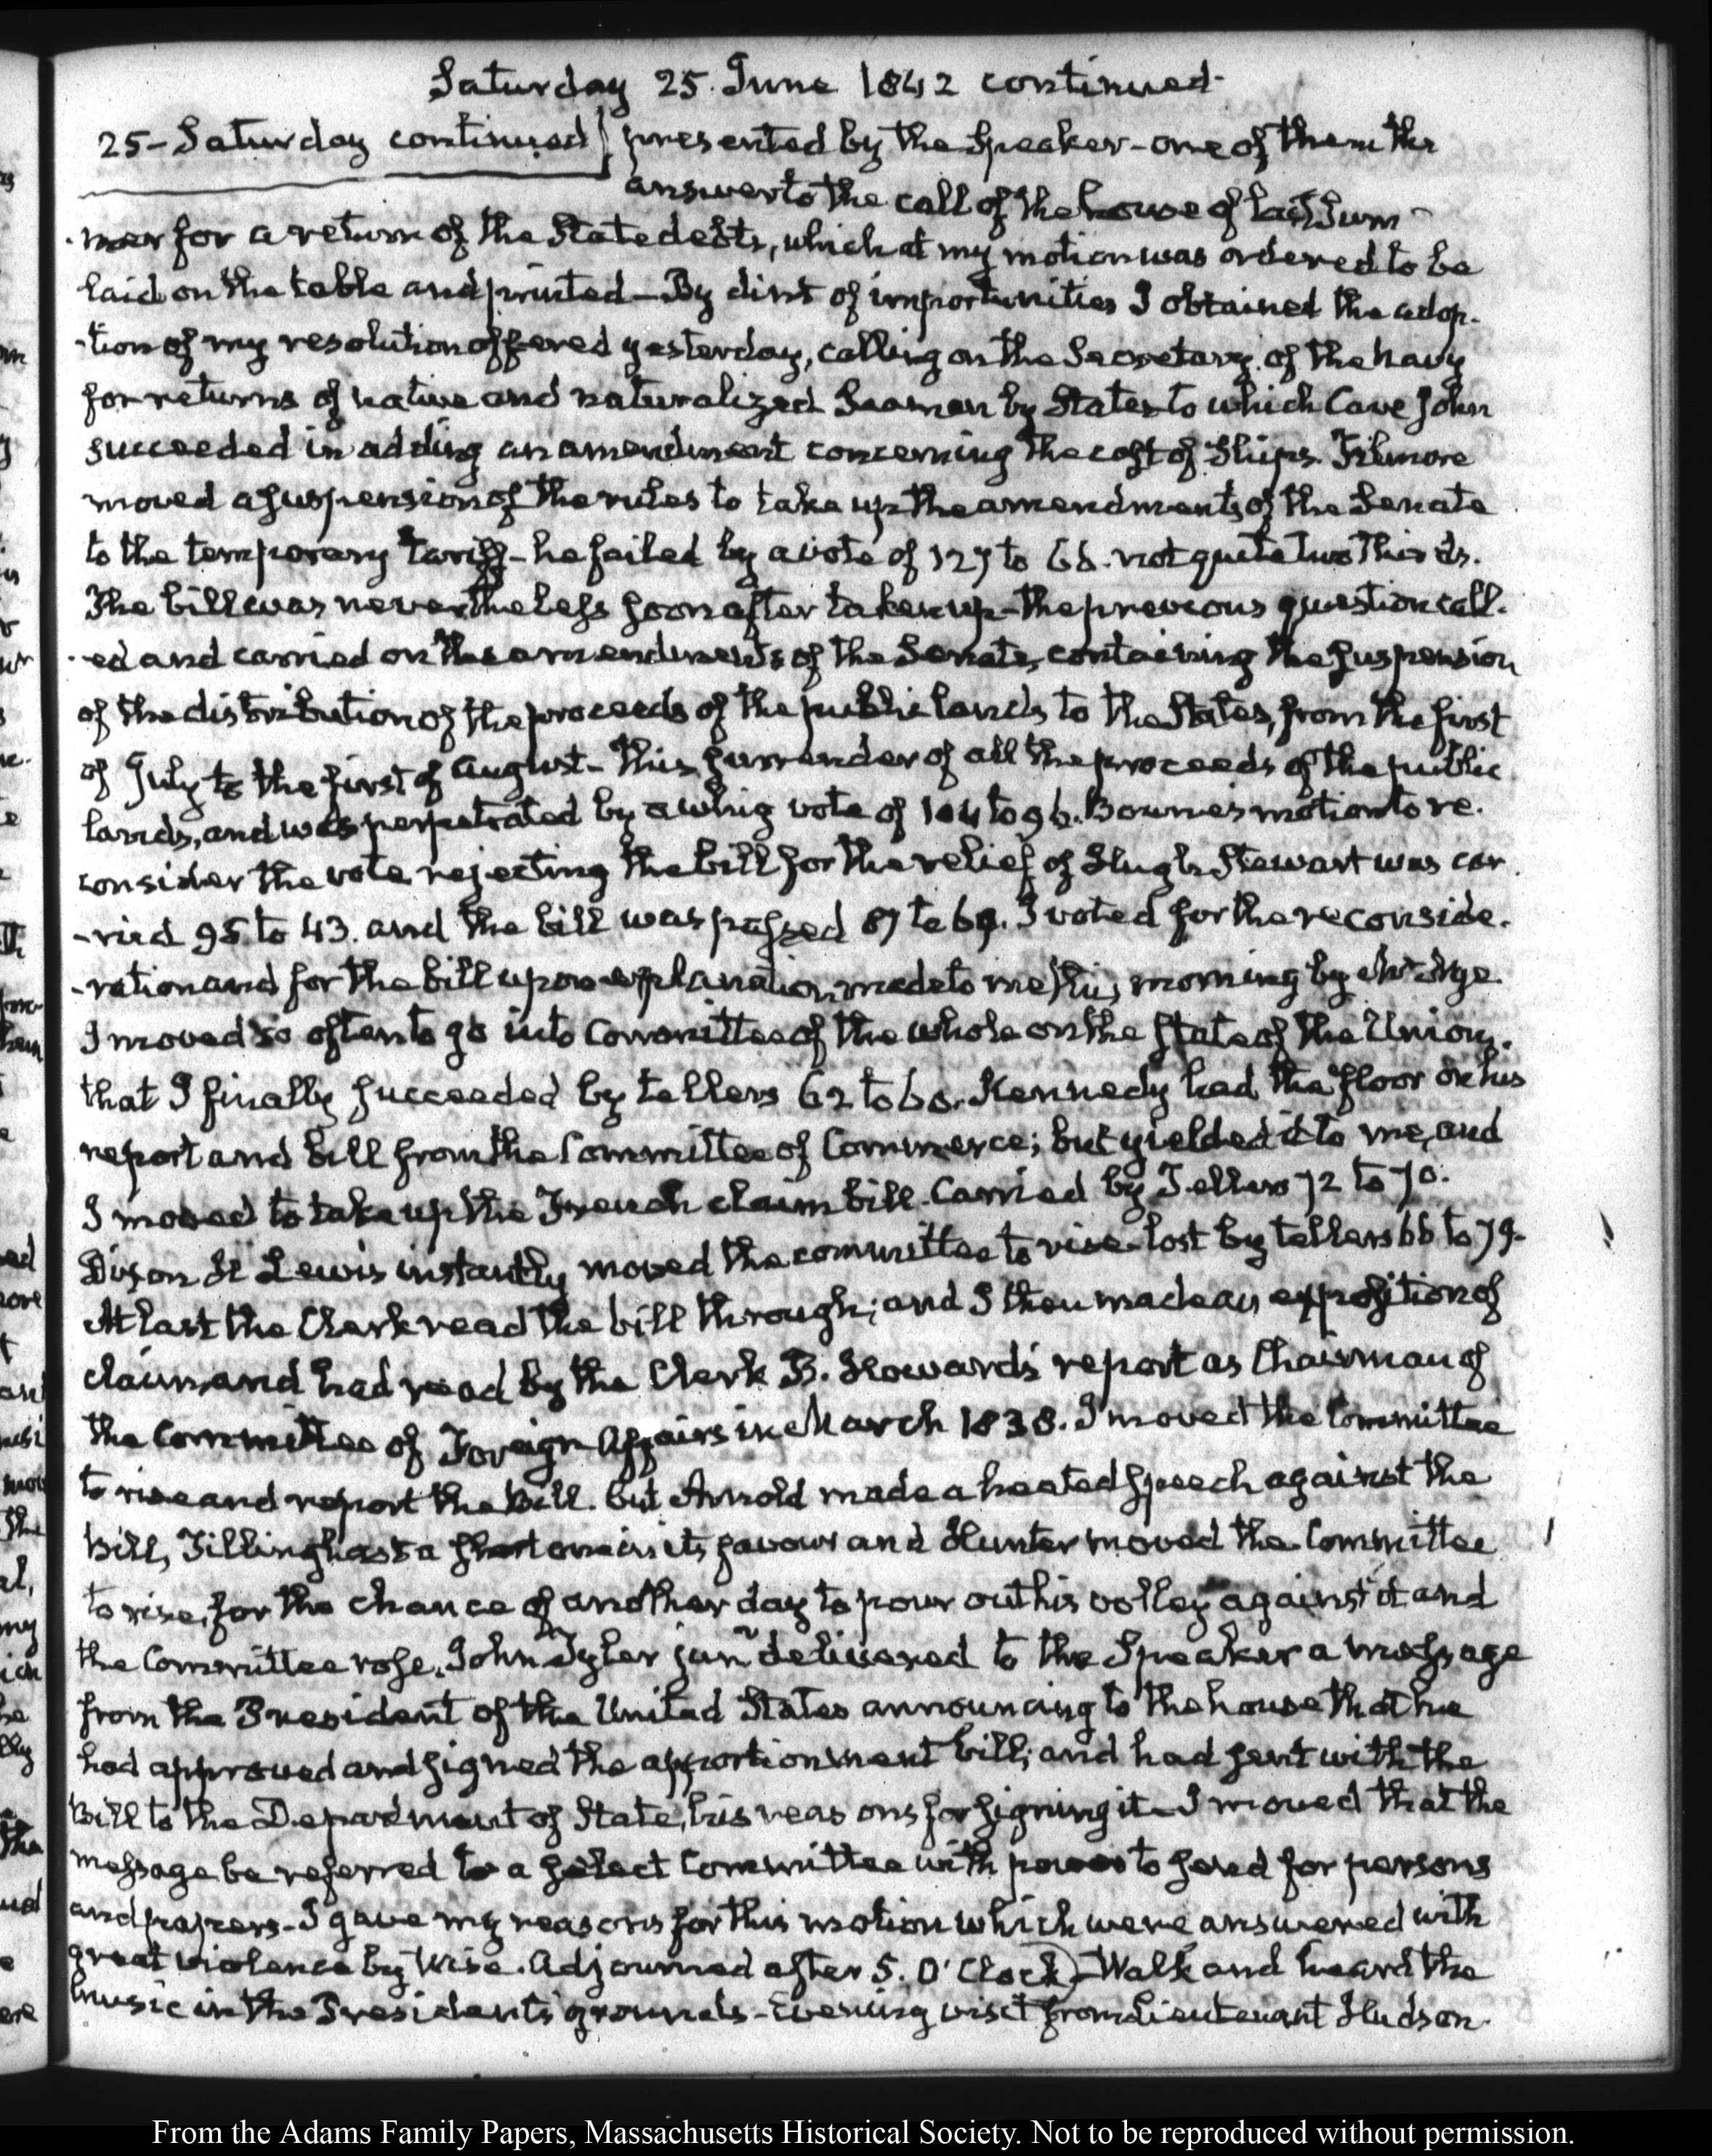 Saturday 25. June 1842 continued.
25-Saturday continued} presented by the Speaker - one of them the
answer to the call of the house of last Sum-
-mer for a return of the State debts, which at my motion was ordered to be
laid on the table and printed - By dint of importunities I obtained the adop-
-tion of my resolution offered yesterday, calling on the Secretary of the Navy
for returns of native and naturalized Seamen by States to which Cave John
succeeded in adding an amendment concerning the cost of Ships. Filmore
moved a suspension of the rules to take up the amendments of the Senate
to the temporary tariff - he failed by a vote of 127 to 66. not quite two thirds.
The bill was nevertheless soon after taken up - the previous question call-
-ed and carried on the amendments of the Senate, containing the suspension
of the distribution of the proceeds of the public lands to the States, from the first
of July to the first of August - This surrender of all the proceeds of the public
lands, and was perpetrated by a whig vote of 104 to 96. Bowne's motion to re-
consider the vote rejecting the bill for the relief of Hugh Stewart was car-
-ried 95 to 43. and the bill was passed 87 to 69. I voted for the reconside-
-ration and for the bill upon explanation made to me this morning by Mr
I moved so often to go into Committee of the whole on the State of the Union.
that I finally succeeded by tellers 62 to 60. Kennedy had the floor on his
report and bill from the Committee of Commerce; but yielded it to me, and
I moved to take up the French claim bill. Carried by Tellers 72 to 70.
Dixon H Lewis instantly moved the committee to rise - lost by tellers 66 to 79.
At last the Clerk read the bill through; and I then made an exposition of
claim, and had read by the Clerk B. Howard's report as Chairman of
the Committee of Foreign Affairs in March 1838. I moved the Committee
to rise and report the bill. but Arnold made a heated speech against the
bill, Tillinghast a short one in its favour and Hunter moved the Committee
to rise, for the chance of another day to pour out his volley against it and
the Committee rose. John Tyler junr. delivered to the Speaker a message
from the President of the United States announcing to the house that he
had approved and signed the apportionment bill; and had sent with the
Bill to the Department of State, his reasons for signing it - I moved that the
message be referred to a select Committee with power to send for persons
and papers - I gave my reasons for this motion which were answered with
great violence by Wise. Adjourned after 5. O'Clock - Walk and heard the
music in the President's grounds - Evening visit from Lieutenant Hudson.
From the Adams Family Papers, Massachusetts Historical Society. Not to be reproduced without permission.